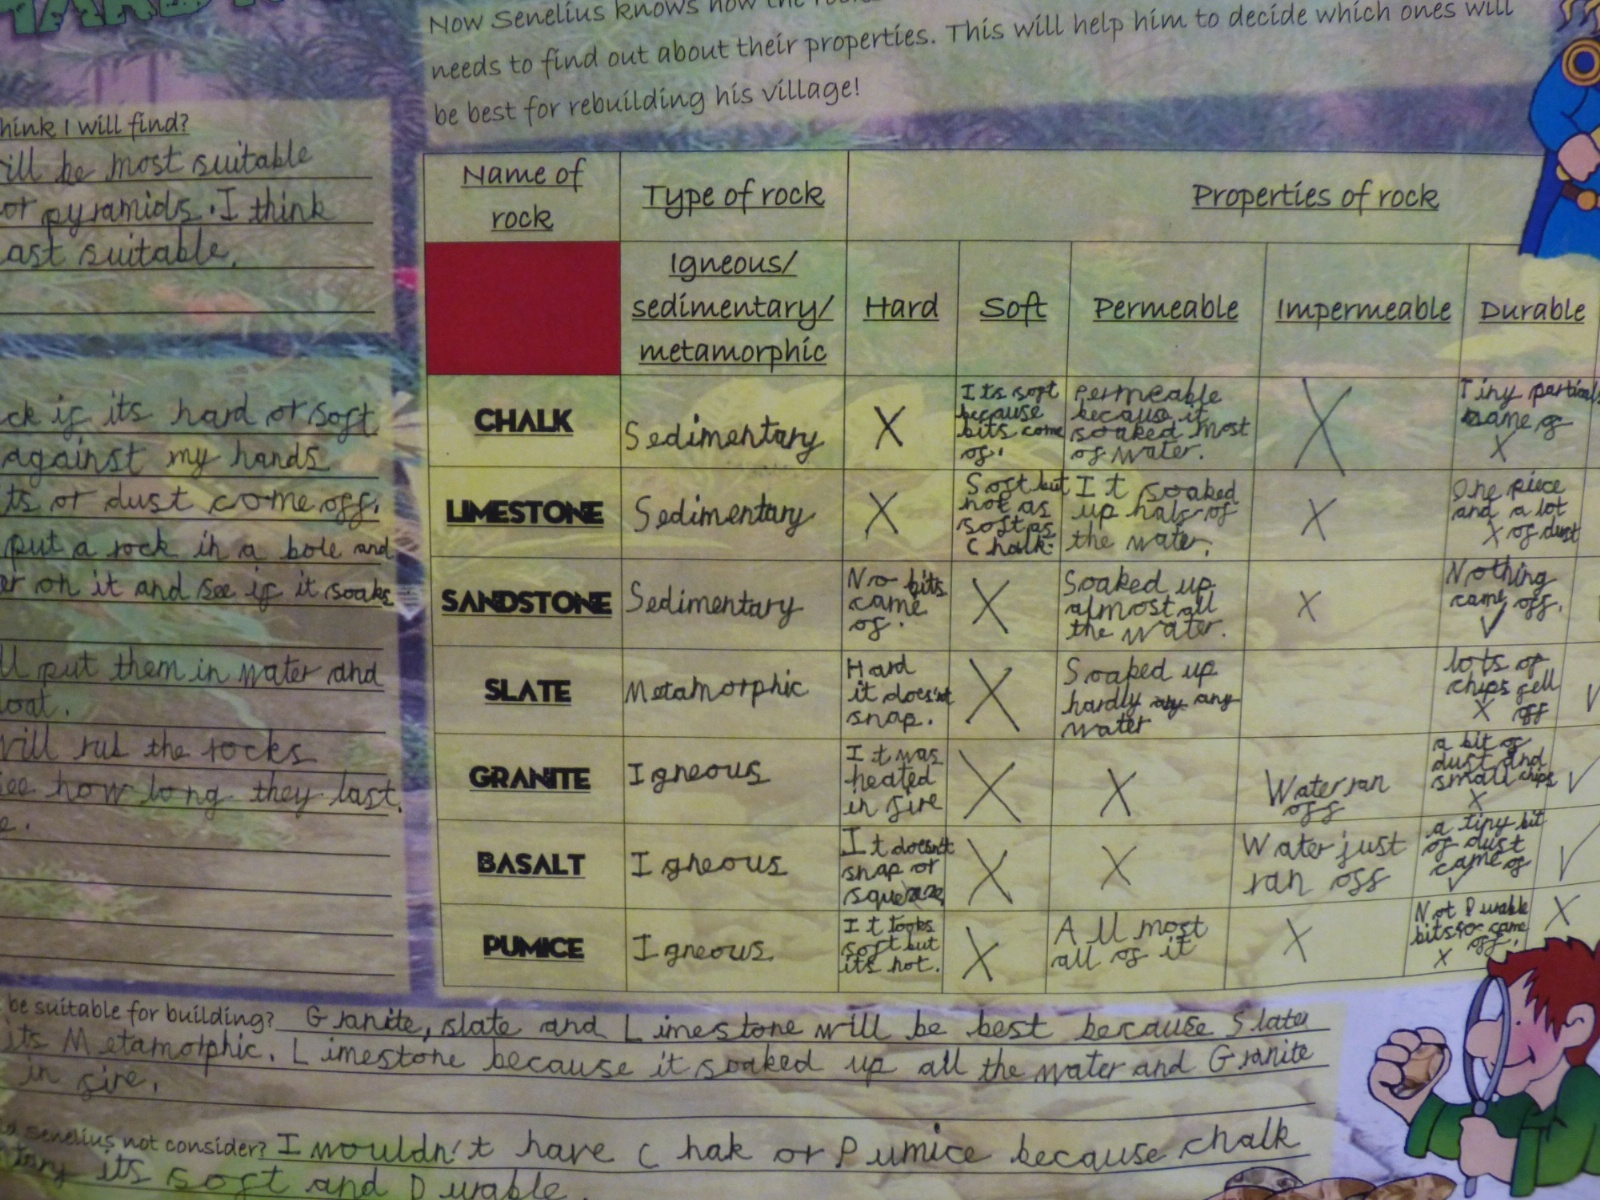 Now Senelius knows how the
needs to find out about their properties. This will help him to decide which ones will
be best for rebuilding his village!
hink I will find?
ill be most suitable
or pyramids. I think
ast suitable.
ck if its hard or soft
against my hands
ts or dust come off.
put a rock in a bole and
er on it and see if it soaks
ll put them in water and
loat.
will rub the rocks
see how long they last.
e.
Name of rock Type of rock Properties of rock
Igneous/ sedimentary/ metamorphic Hard Soft Permeable Impermeable Durable
CHALK Sedimentary X Its soft because bits come of. Permeable because it soaked most of water. X Tiny particals came of X
LIMESTONE Sedimentary X Soft but not as soft as chalk. It soaked up half of the water. X One piece and a lot X of dust
SANDSTONE Sedimentary No bits came of. X Soaked up almost all the water. X Nothing came off. ✓
SLATE Metamorphic Hard it doesn't snap. X Soaked up hardly any water lots of chips fell X off ✓
GRANITE Igneous It was heated in fire X X Water ran off a bit of dust and small chips X ✓
BASALT Igneous It doesn't snap or squeaze X X Water just ran off a tiny bit of dust came of ✓ ✓
PUMICE Igneous It looks soft but its not. X All most all of it X Not Durable bits came off. X X
be suitable for building? Granite, slate and Limestone will be best because Slate
its Metamorphic. Limestone because it soaked up all the water and Granite
in fire.
senelius not consider? I wouldn't have Chak or Pumice because chalk
its soft and Durable.